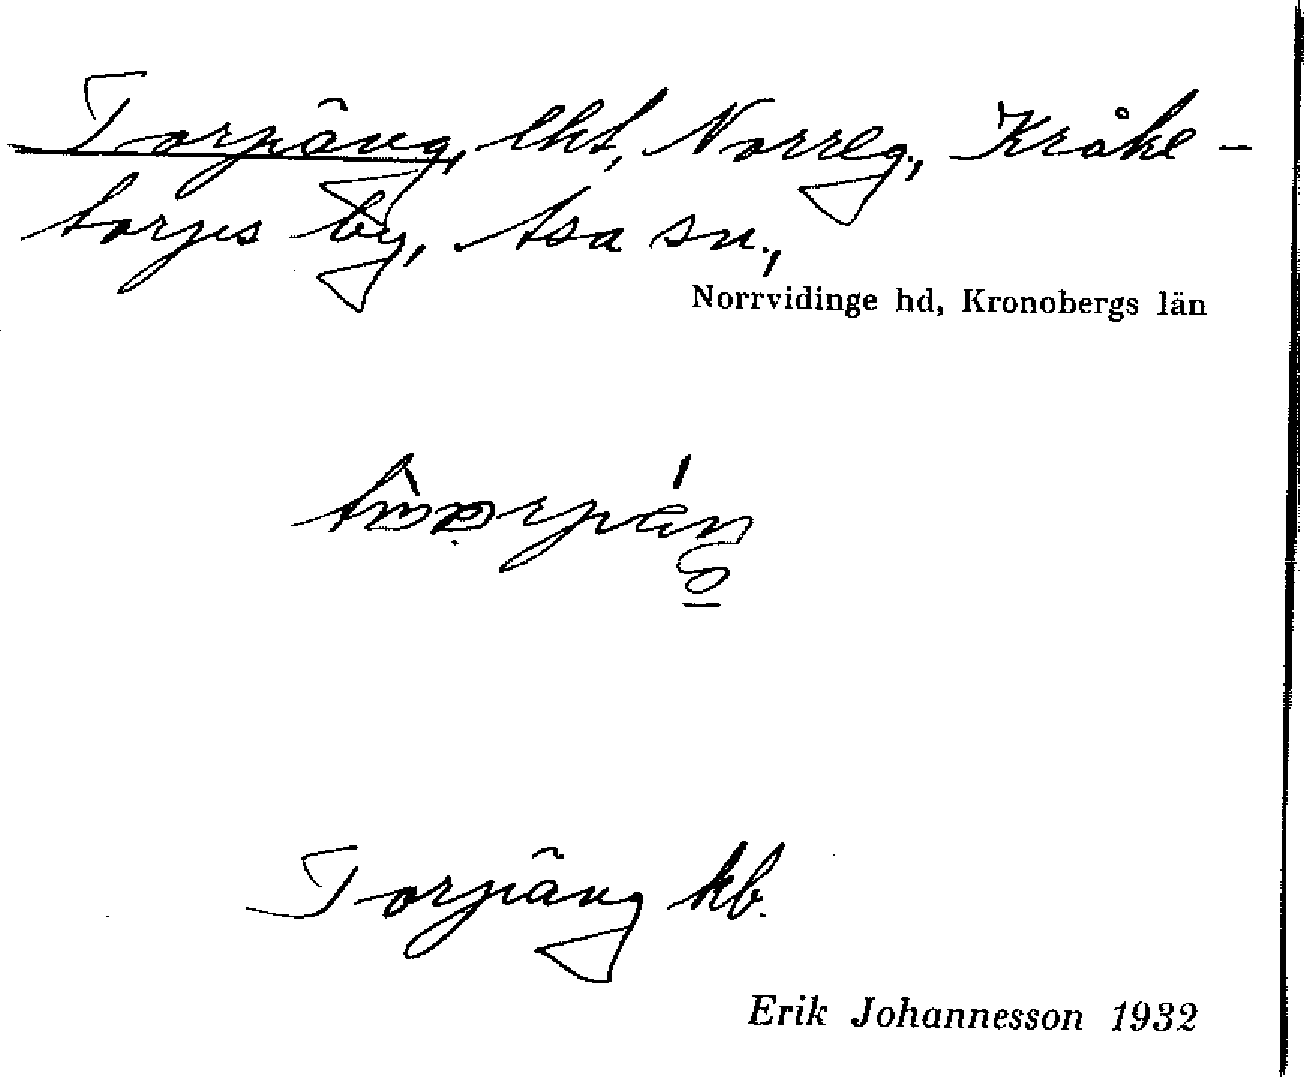 Torpäng, lht, Norreg, Kråke-
torps by, Asa sn.,
Norrvidinge hd, Kronobergs län
Torpäng kb.
Erik Johannesson 1932